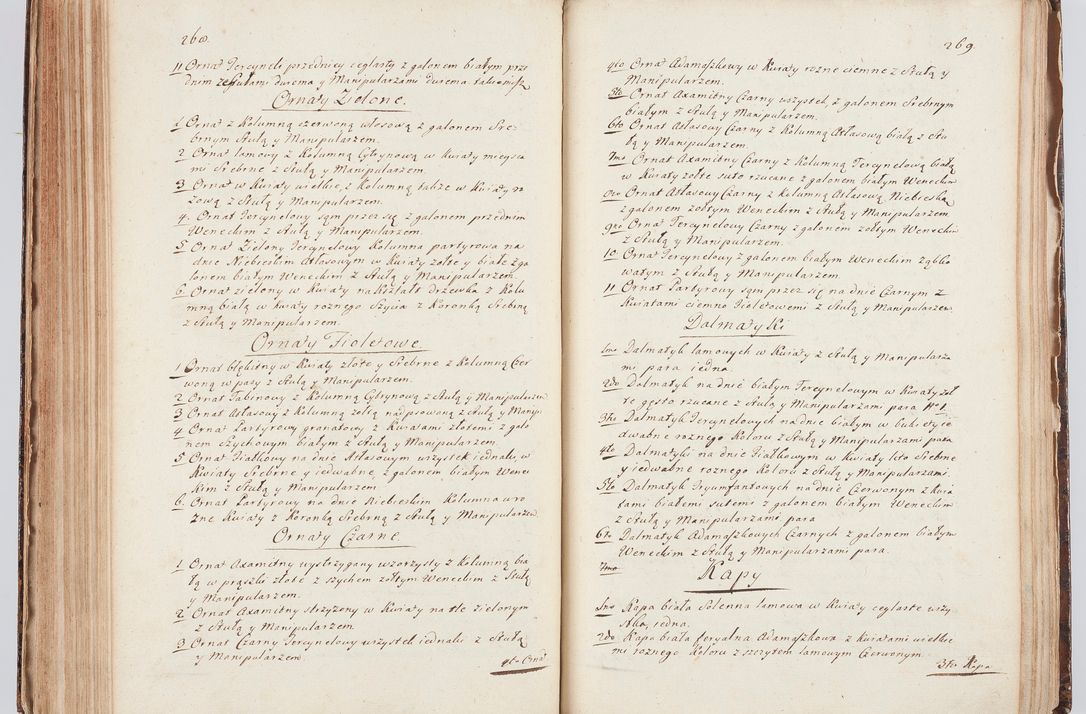 268.
11 Ornat Tercynele przednicy ceglasty z galonem białym prze
dnim zestułami dwoma y Manipularzami dwema
Ornaty Zielone.
1 Ornat z Kolumną czerwoną włosową z galonem Sre-
brnym Stułą y Manipularzem.
2 Ornat lamowy z Kolumną Cytrynową w Kwiaty mieysca
mi Srebrne z Stułą y Manipularzem.
3 Ornat w Kwiaty wielkie z Kolumną także w Kwiaty ro
żową z Stułą y Manipularzem.
4. Ornat Tercynelowy sąm przez się z galonem przednim
Weneckim z Stułą y Manipularzem.
5 Ornat Zielony Tercynelowy Kolumna partyrowa na
dnie Niebieskim Atłasowym w Kwiaty żołte y białe z ga
lonem białym Weneckim z Stułą y Manipularzem.
6. Ornat zielony w Kwiaty na Kształt drzewka z Kolu
mną białą w kwiaty roznego Szycia z Koronką Srebrną
z Stułą y Manipularzem.
Ornaty Fioletowe.
1 Ornat błękitny w Kwiaty złote y Srebrne z Kolumną Czer
woną w pasy z Stułą y Manipularzem.
2 Ornat Tabinowy z Kolumną Cytrynową z Stułą y Manipularzem
3 Ornat Atłasowy z Kolumną żołtą nadpsowoną z Stułą y Manipu
4 Ornat Partyrowy granatowy z Kwiatami złotemi z galo
nem Szychowym białym z Stułą y Manipularzem.
5 Ornat Fiałkowy na dnie Atłasowym wszystek iednaki w
Kwiaty Srebrne y iedwabne z galonem białym Wene
kim z Stułą y Manipularzem
6. Ornat Partyrowy na dnie Niebieskim Kolumna w ro
zne Kwiaty z Koronką Srebrną z Stułą y Manipularzem
Ornaty Czarne.
1 Ornat Axamitny wystrzygany wzorzysty z Kolumną bia
łą w prązki złote z szychem żołtym Weneckim z Stułą
y Manipularzem.
2 Ornat Axamitny strzyżony w Kwiaty na tle zielonym
z Stułą y Manipularzem
3 Ornat Czarny Tercynelowy wszystek iednaki z Stułą
y Manipularzem.
4to Ornat
269.
4to Ornat Adamaszkowy w Kwiaty rozne ciemne z Stułą y
Manipularzem.
5to Ornat Axamitny Czarny wszystek z galonem Srebrnym
białym z Stułą y Manipularzem.
6to Ornat Atłasowy Czarny z Kolumną Atłasową białą z Stu
łą y Manipularzem.
7mo Ornat Axamitny Czarny z Kolumną Tercynelową białą
w Kwiaty żołte suto rzucane z galonem białym Weneckim
8vo Ornat Atłasowy Czarny z Kolumną Atłasową Niebieską
z galonem żołtym Weneckim z Stułą y Manipularzem
9no Ornat Tercynelowy Czarny z galonem żołtym Weneckim
z Stułą y Manipularzem.
10. Ornat Tercynelowy z galonem białym Weneckim ząbko
watym z Stułą y Manipularzem
11 Ornat Partyrowy sąm przez się na dnie Czarnym z
Kwiatami ciemno Fioletowemi z Stułą y Manipularzem
Dalmatyki
1mo Dalmatyk lamowych w Kwiaty z Stułą y Manipularza
mi para iedna.
2do Dalmatyk na dnie białym Tercynelowym w Kwiaty żoł
te gęsto rzucane z Stułą y Manipularzami para No 1.
3tio Dalmatyk Tercynelowych na dnie białym w bukiety ie
dwabne roznego Koloru z Stułą y Manipularzami para
4to Dalmatyki na dnie Fiałkowym w Kwiaty lito Srebne
y iedwabne roznego Koloru z Stułą y Manipularzami.
5to Dalmatyk Tryumfantowych na dnie Czerwonym z Kwia
tami białemi sutemi z galonem białym Weneckim
z Stułą y Manipularzami para
6to Dalmatyk Adamaszkowych Czarnych z galonem białym
Weneckim z Stułą y Manipularzami para.
7mo
Kapy
1mo Kapa biała Solenna lamowa w Kwiaty ceglaste wszy
stka, iedna.
2do Kapa biała feryalna Adamaszkowa z kwiatami wielkie
mi roznego Koloru z szczytem lamowym Czerwonym
3tio Kapa